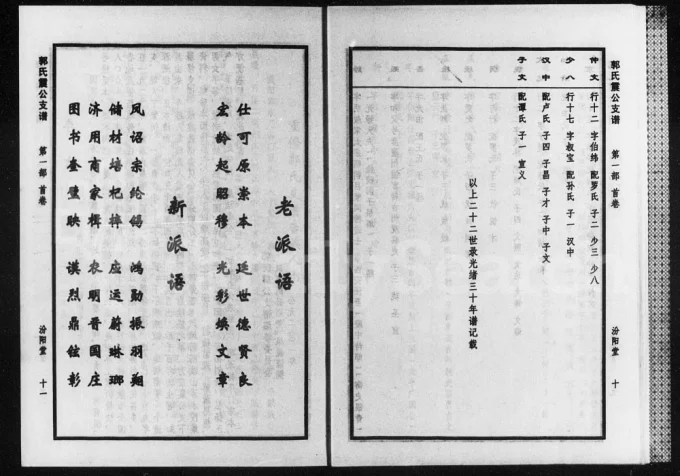 郭氏震公支谱 第一部 首卷 汾阳堂 十
仲文 行十二 字伯纬 配罗氏 子二 少三 少八
少八 行十七 字叔宝 配孙氏 子一 汉中
汉中 配卢氏 子四 子昌 子才 子中 子文
子文 配谭氏 子一 宣义
以上二十二世录光绪三十年谱记载
老派语
仕可原崇本 延世德贤良
宏龄起昭穆 光彩焕文章
新派语
凤诏宗纶锡 鸿勋振羽翔
储材培杞梓 应运蔚琳瑯
济用商家楫 农明晋国庄
图书奎璧映 谟烈鼎铉彰
郭氏震公支谱 第一部 首卷 汾阳堂 十一